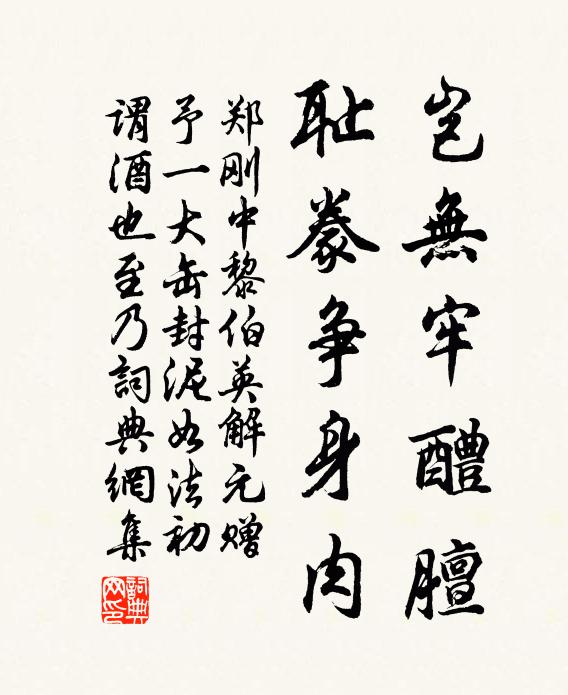 岂無牢醴膻
耻豢争身肉
郑刚中黎伯英解元赠
予一大缶封泥如法初
謂酒也至乃詞典網集
詞典网印